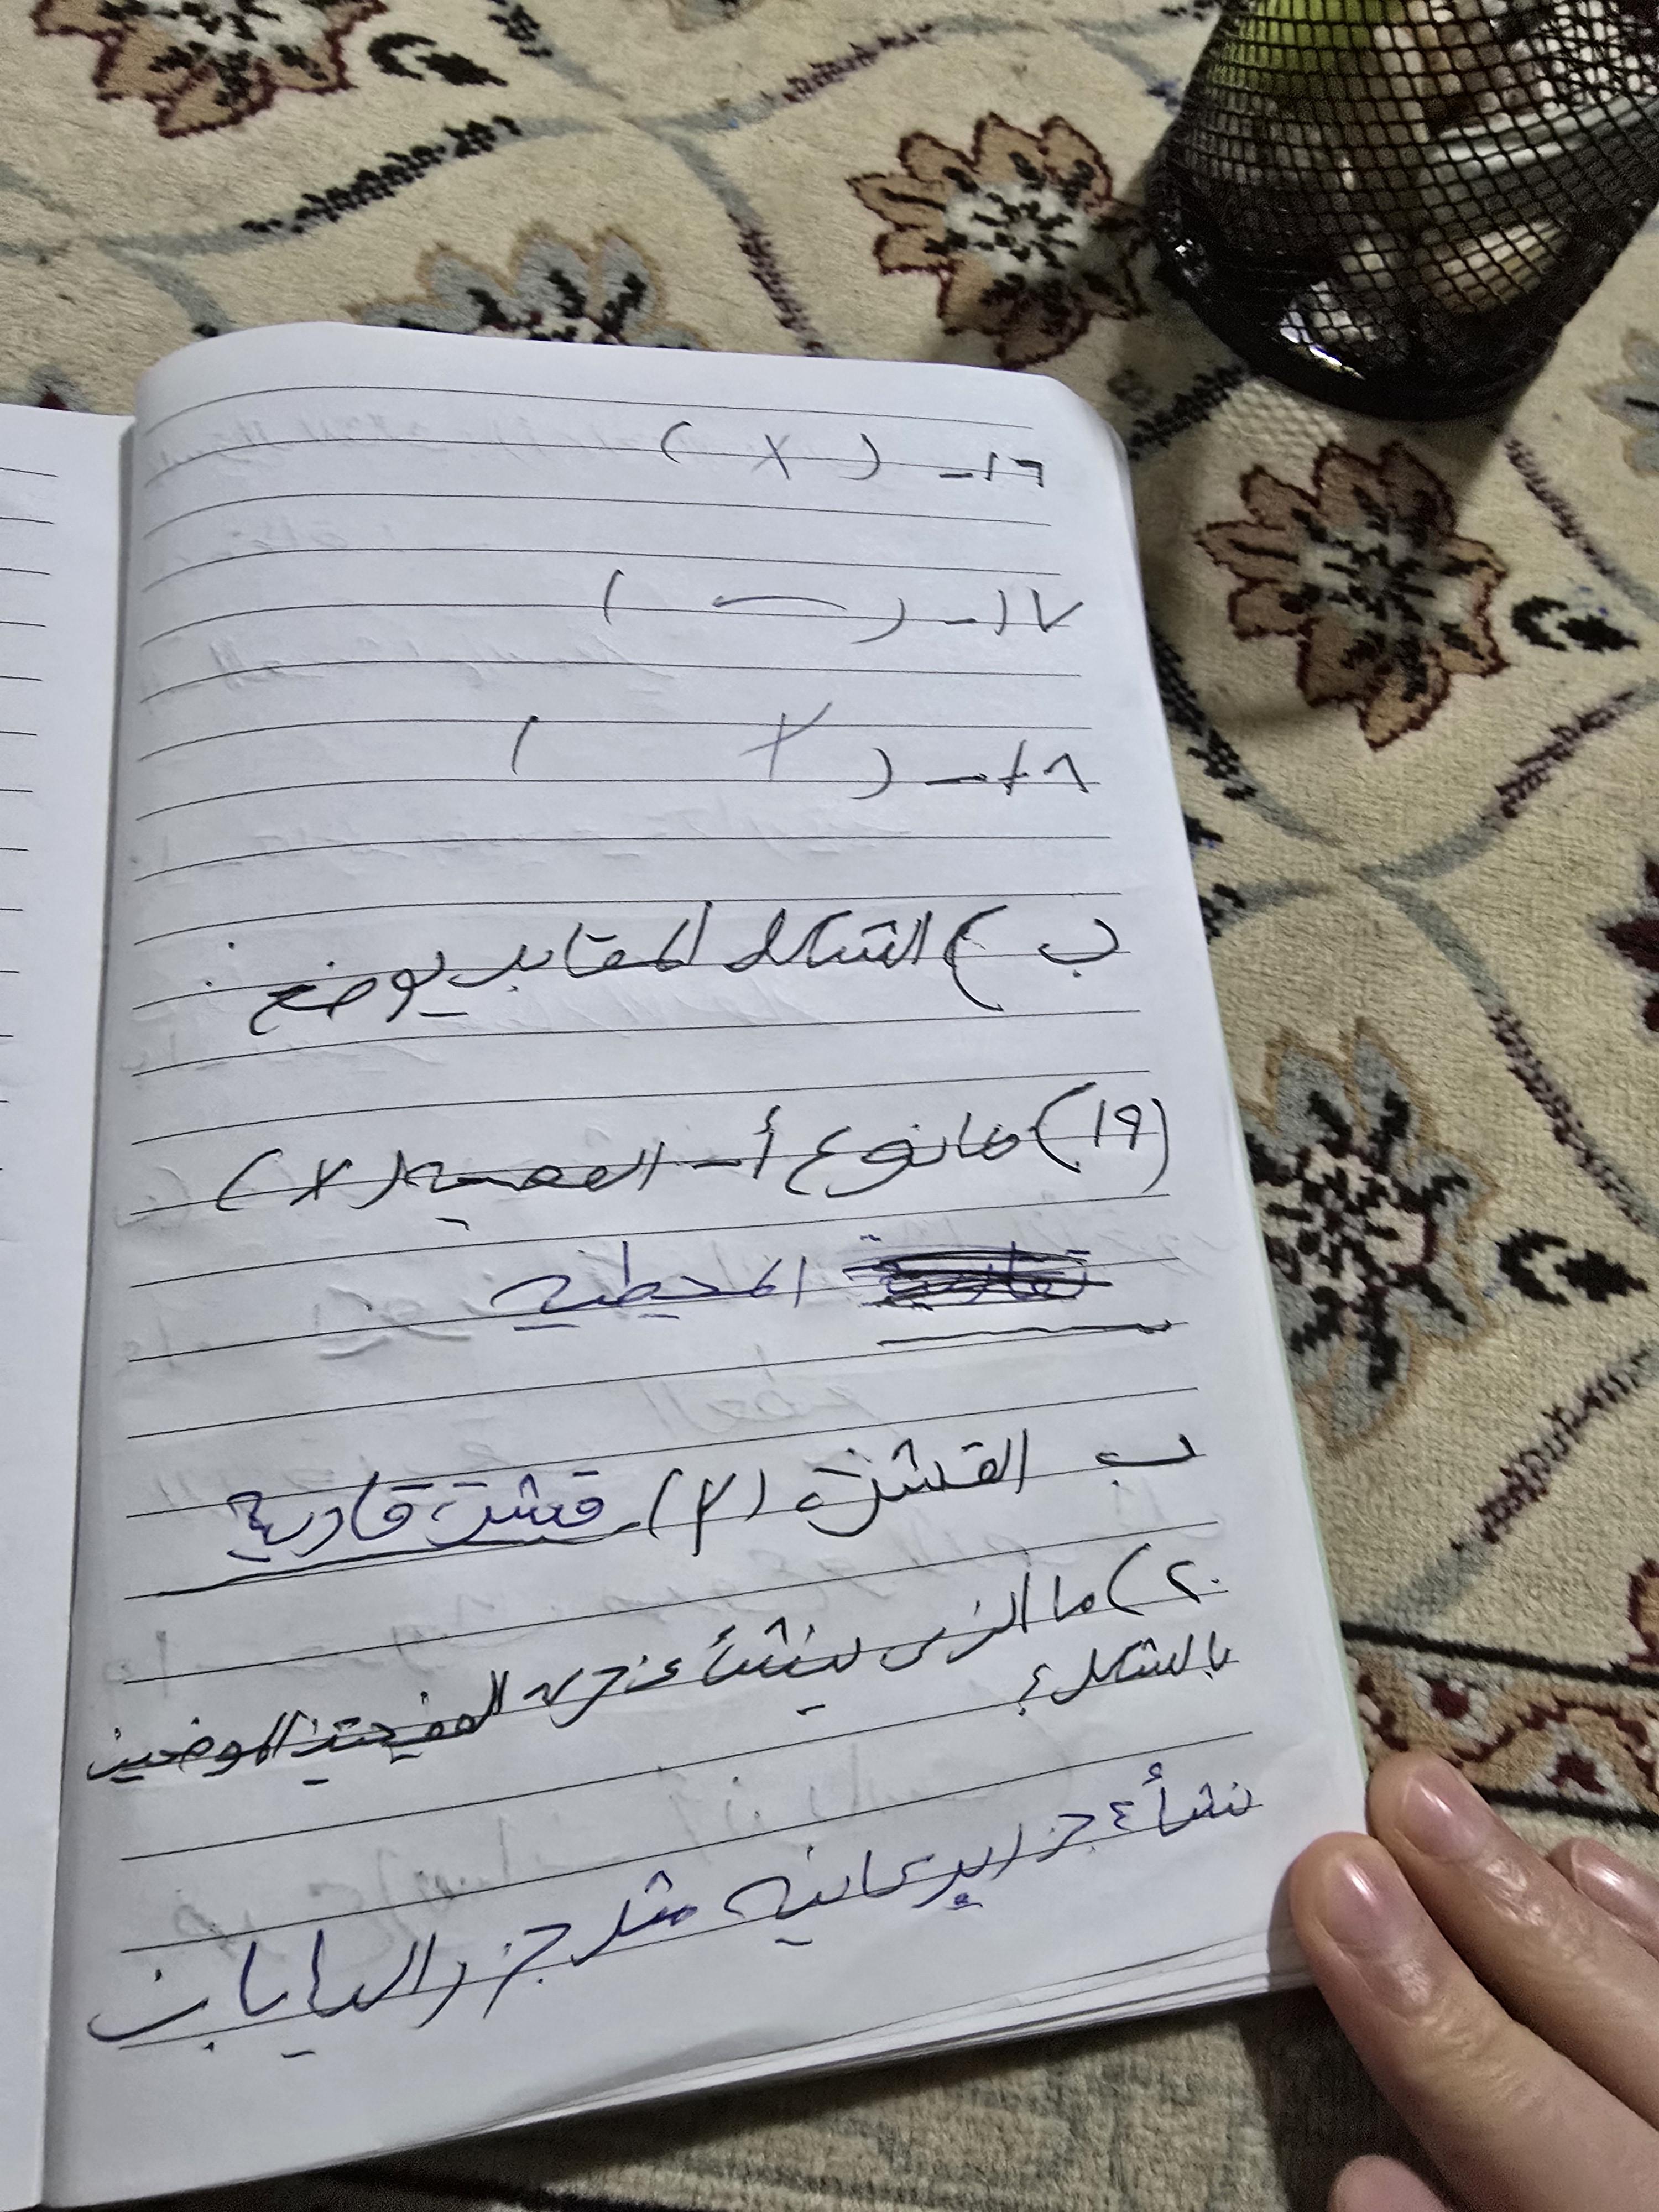 ١٦- ( X )
١٧- ( )
١٨- ( )
ب ) الشكل المقابل يوضح :
(١٩) ما نوع أ- الصفيحه ( X )
المحيطيه
ب القشرة (٢) قشرة قارية
٢٠) ما الذي ينشأ عن حركة الصفيحتين الموضحين
بالشكل ؟
نشأة جزر بركانيه مثل جزر اليابان